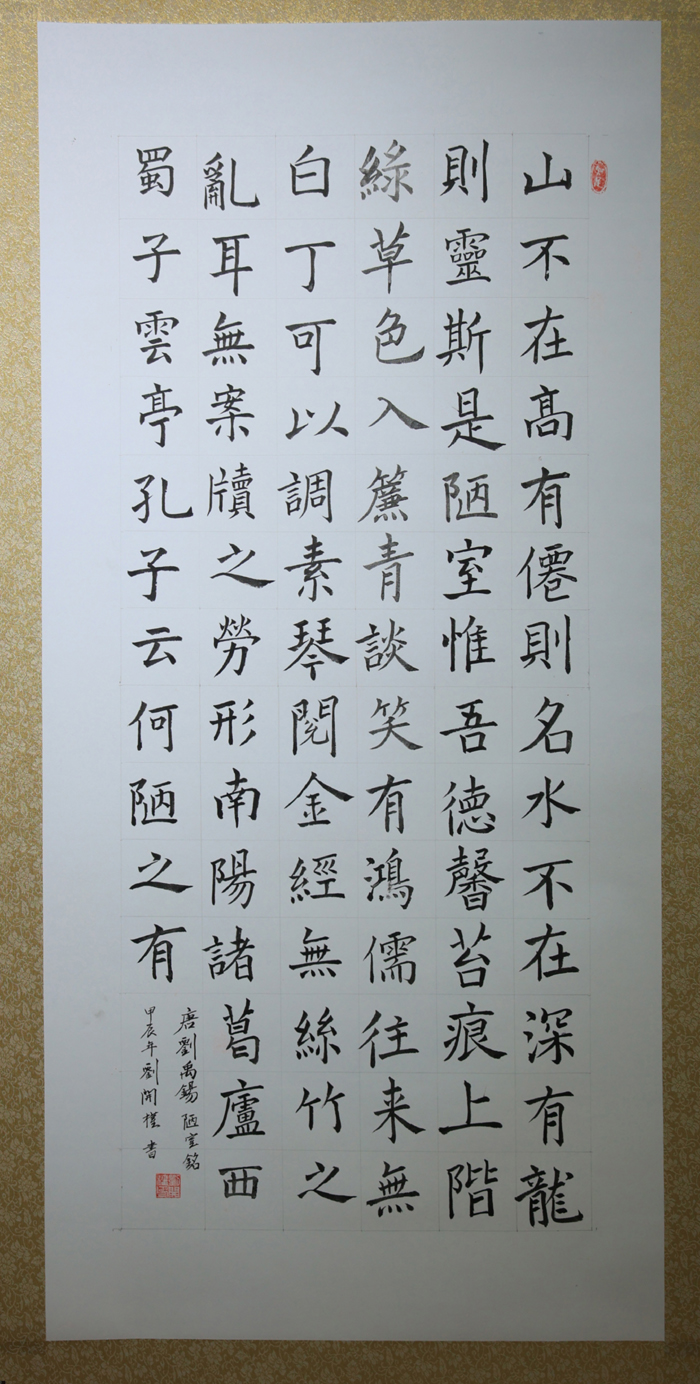 山不在高有僊則名水不在深有龍
則靈斯是陋室惟吾德馨苔痕上階
綠草色入簾青談笑有鴻儒往来無
白丁可以調素琴閱金經無絲竹之
亂耳無案牘之勞形南陽諸葛廬西
蜀子雲亭孔子云何陋之有
唐劉禹錫陋室銘
甲辰年劉開樸書